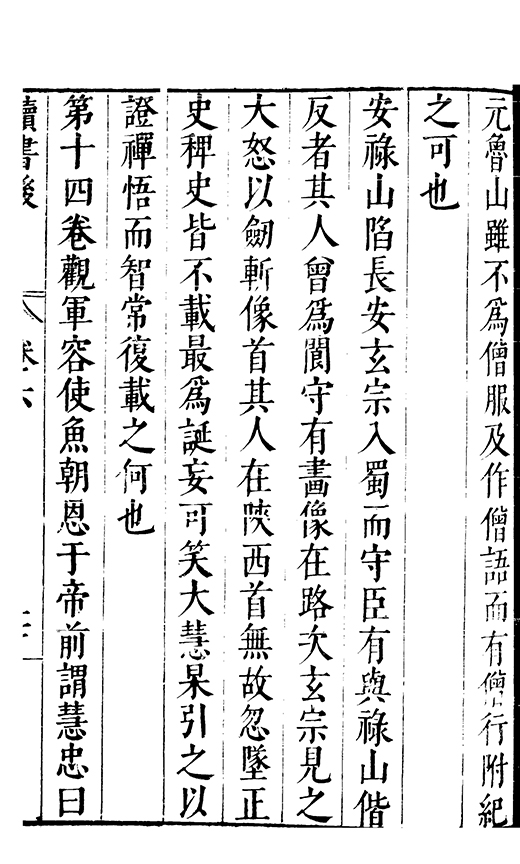 元魯山雖不爲僧服及作僧語而有僧行附紀
之可也
安祿山陷長安玄宗入蜀而守臣有與祿山偕
反者其人曾爲閬守有畵像在路次玄宗見之
大怒以劒斬像首其人在陝西首無故忽墜正
史稗史皆不載最爲誕妄可笑大慧杲引之以
證禪悟而智常復載之何也
第十四卷觀軍容使魚朝恩于帝前謂慧忠曰
讀書後
卷六